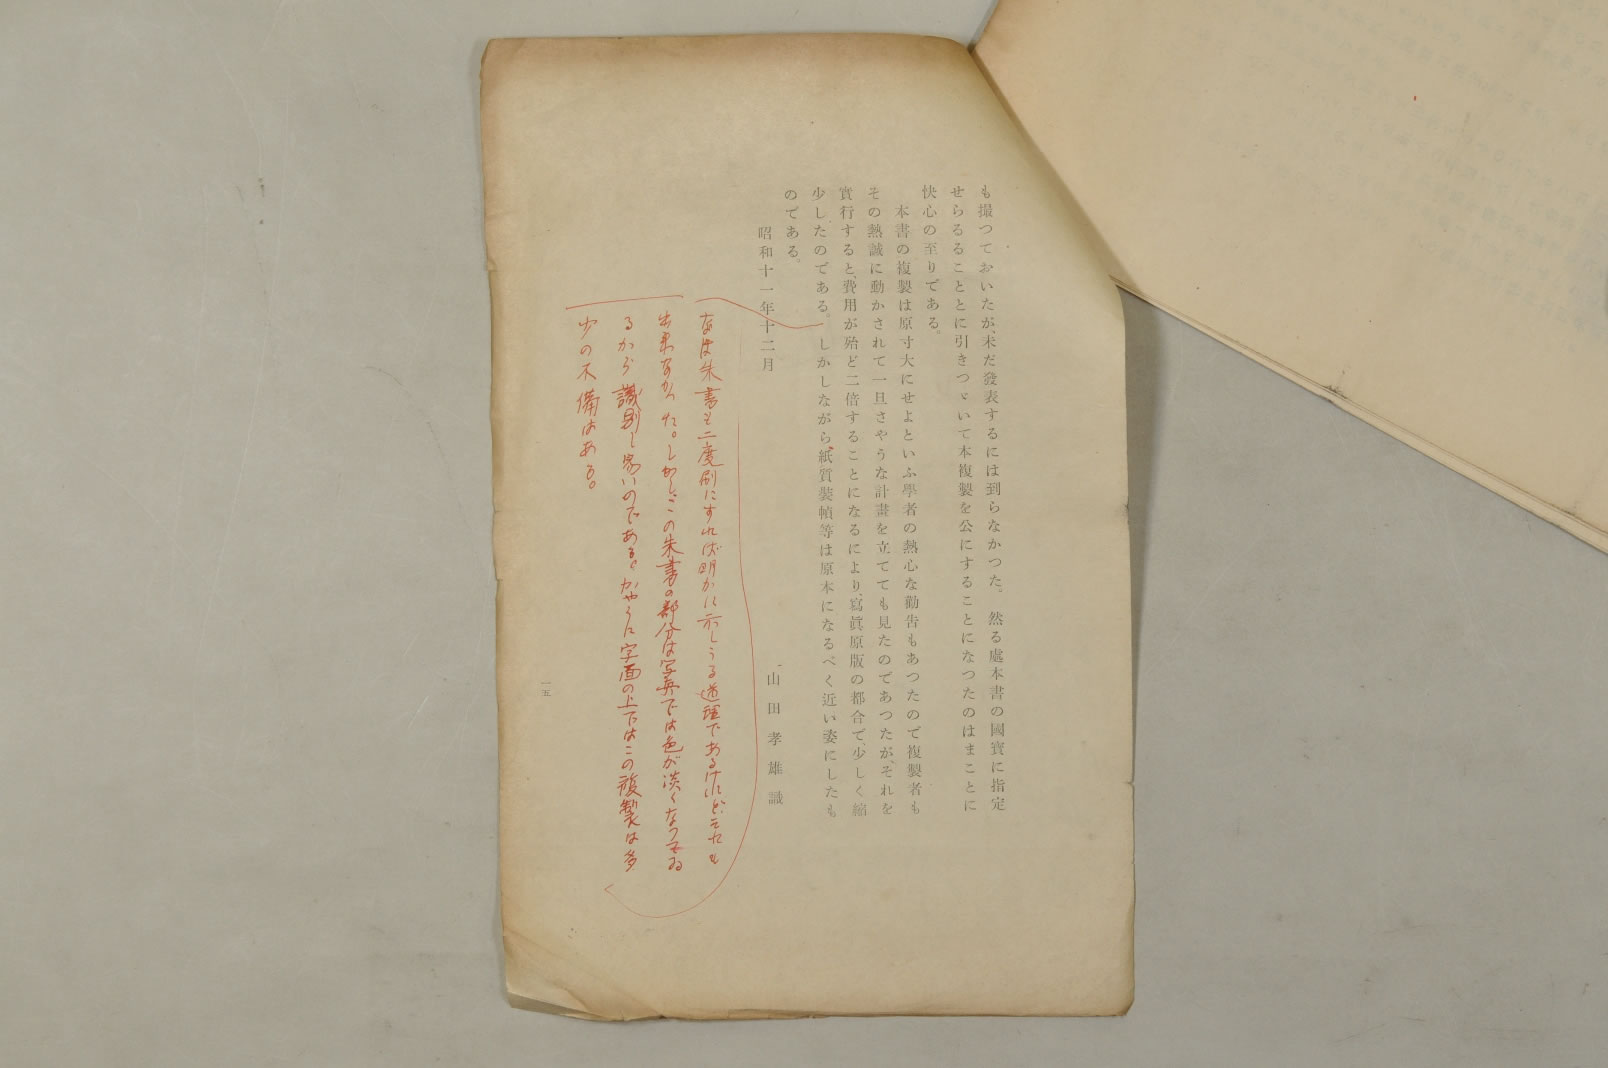 も撮つておいたが、未だ發表するには到らなかつた。然る處本書の國寳に指定
せらるることとに引きつゞいて本複製を公にすることになつたのはまことに
快心の至りである。
本書の複製は原寸大にせよといふ學者の熱心な勸告もあつたので複製者も
その熱誠に動かされて一旦さやうな計畫を立てても見たのであつたが、それを
實行すると、費用が殆ど二倍することになるにより、寫眞原版の都合で、少しく縮
少したのである。しかしながら、紙質裝幀等は原本になるべく近い姿にしたも
のである。
昭和十一年十二月
山田孝雄識
なほ朱書も二度刷にすれば明かに示しうる道理であるけれどそれも
出来なかつた。しかしこの朱書の部分は写真では色が淡くなつてゐ
るから識別し易いのである。かやうに字面の上ではこの複製は多
少の不備はある。
一五